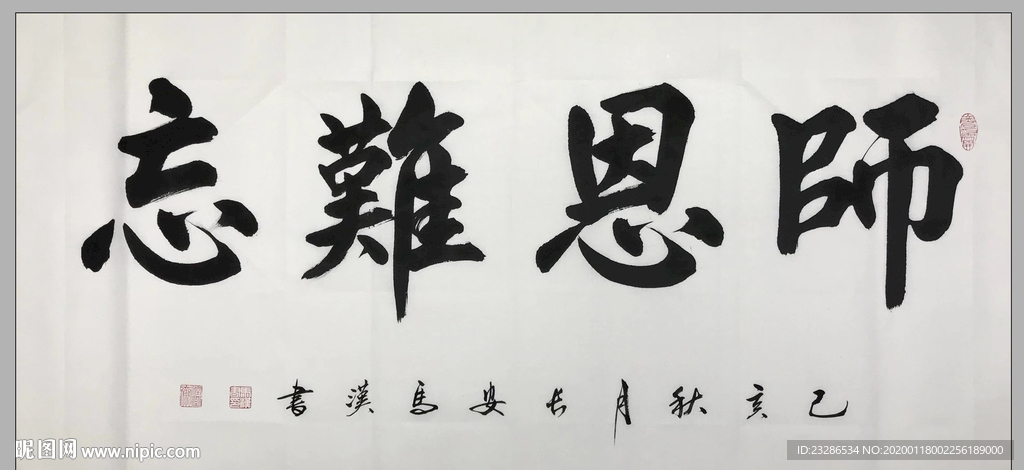 師恩難忘
己亥秋月長安馬漢書
昵图网 www.nipic.com
ID:23286534 NO:20200118002256189000